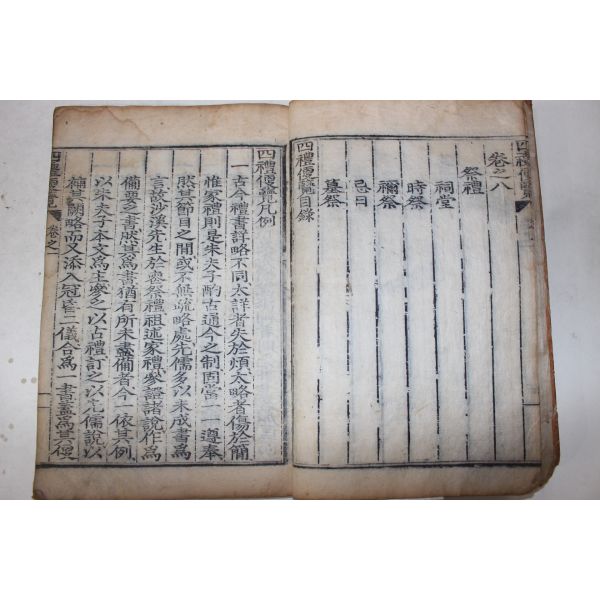 卷之八
祭禮
祠堂
時祭
禰祭
忌日
墓祭
四禮便覽目錄
四禮便覽凡例
一古今禮書詳略不同太詳者失於煩太略者傷於簡
惟家禮則是朱夫子酌古通今之制固當一一遵奉
然其節目之間或不無疏略處先儒多以未成書爲
言故沙溪先生於喪祭禮祖述家禮參證諸說作爲
備要之書然其爲書猶有所未盡備者今一依其例
以朱夫子本文爲主參之以古禮訂之以先儒說以
補其闕略而又添入冠昏二儀合爲一書蓋爲其便
四禮便覽
卷之一